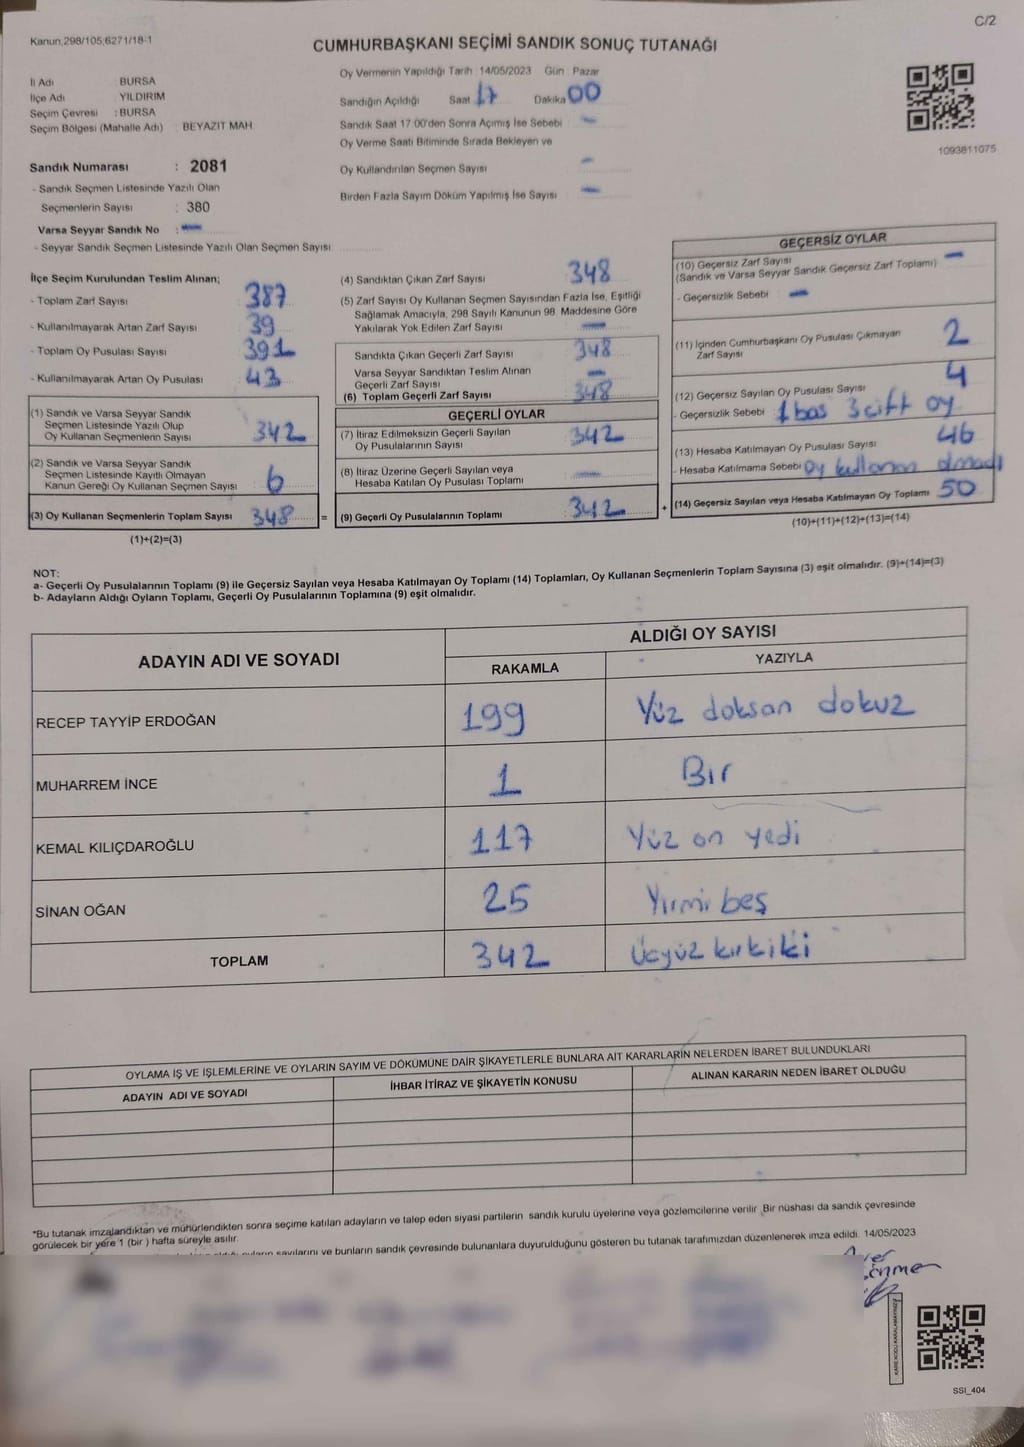 C/2
Kanun.298/105;6271/18-1
CUMHURBAŞKANI SEÇİMİ SANDIK SONUÇ TUTANAĞI
İl Adı BURSA
İlçe Adı YILDIRIM
Seçim Çevresi : BURSA
Seçim Bölgesi (Mahalle Adı) BEYAZIT MAH.
Oy Vermenin Yapıldığı Tarih 14/05/2023 Gün : Pazar
Sandığın Açıldığı Saat 17 Dakika 00
Sandık Saat 17:00'den Sonra Açımış İse Sebebi -
Oy Verme Saati Bitiminde Sırada Bekleyen ve
Oy Kullandırılan Seçmen Sayısı -
Birden Fazla Sayım Döküm Yapılmış İse Sayısı -
1093811075
Sandık Numarası : 2081
- Sandık Seçmen Listesinde Yazılı Olan
Seçmenlerin Sayısı : 380
Varsa Seyyar Sandık No : -
- Seyyar Sandık Seçmen Listesinde Yazılı Olan Seçmen Sayısı
İlçe Seçim Kurulundan Teslim Alınan;
- Toplam Zarf Sayısı 387
- Kullanılmayarak Artan Zarf Sayısı 39
- Toplam Oy Pusulası Sayısı 391
- Kullanılmayarak Artan Oy Pusulası 43
(1) Sandık ve Varsa Seyyar Sandık
Seçmen Listesinde Yazılı Olup
Oy Kullanan Seçmenlerin Sayısı 342
(2) Sandık ve Varsa Seyyar Sandık
Seçmen Listesinde Kayıtlı Olmayan
Kanun Gereği Oy Kullanan Seçmen Sayısı 6
(3) Oy Kullanan Seçmenlerin Toplam Sayısı 348 =
(1)+(2)=(3)
(4) Sandıktan Çıkan Zarf Sayısı 348
(5) Zarf Sayısı Oy Kullanan Seçmen Sayısından Fazla İse, Eşitliği
Sağlamak Amacıyla, 298 Sayılı Kanunun 98. Maddesine Göre
Yakılarak Yok Edilen Zarf Sayısı -
Sandıkta Çıkan Geçerli Zarf Sayısı 348
Varsa Seyyar Sandıktan Teslim Alınan
Geçerli Zarf Sayısı -
(6) Toplam Geçerli Zarf Sayısı 348
GEÇERLİ OYLAR
(7) İtiraz Edilmeksizin Geçerli Sayılan
Oy Pusulalarının Sayısı 342
(8) İtiraz Üzerine Geçerli Sayılan veya
Hesaba Katılan Oy Pusulası Toplamı -
(9) Geçerli Oy Pusulalarının Toplamı 342 +
GEÇERSİZ OYLAR
(10) Geçersiz Zarf Sayısı -
(Sandık ve Varsa Seyyar Sandık Geçersiz Zarf Toplamı)
- Geçersizlik Sebebi -
(11) İçinden Cumhurbaşkanı Oy Pusulası Çıkmayan 2
Zarf Sayısı
(12) Geçersiz Sayılan Oy Pusulası Sayısı 4
- Geçersizlik Sebebi 1 bas 3 cift oy
(13) Hesaba Katılmayan Oy Pusulası Sayısı 46
- Hesaba Katılmama Sebebi oy kullanan olmadı
(14) Geçersiz Sayılan veya Hesaba Katılmayan Oy Toplamı 50
(10)+(11)+(12)+(13)=(14)
NOT:
a- Geçerli Oy Pusulalarının Toplamı (9) ile Geçersiz Sayılan veya Hesaba Katılmayan Oy Toplamı (14) Toplamları, Oy Kullanan Seçmenlerin Toplam Sayısına (3) eşit olmalıdır. (9)+(14)=(3)
b- Adayların Aldığı Oyların Toplamı, Geçerli Oy Pusulalarının Toplamına (9) eşit olmalıdır.
ADAYIN ADI VE SOYADI ALDIĞI OY SAYISI
RAKAMLA YAZIYLA
RECEP TAYYİP ERDOĞAN 199 Yüz doksan dokuz
MUHARREM İNCE 1 Bir
KEMAL KILIÇDAROĞLU 117 Yüz on yedi
SİNAN OĞAN 25 Yirmi beş
TOPLAM 342 Ücyüz kırkiki
OYLAMA İŞ VE İŞLEMLERİNE VE OYLARIN SAYIM VE DÖKÜMÜNE DAİR ŞİKAYETLERLE BUNLARA AİT KARARLARIN NELERDEN İBARET BULUNDUKLARI
ADAYIN ADI VE SOYADI İHBAR İTİRAZ VE ŞİKAYETİN KONUSU ALINAN KARARIN NEDEN İBARET OLDUĞU
*Bu tutanak imzalandıktan ve mühürlendikten sonra seçime katılan adayların ve talep eden siyasi partilerin sandık kurulu üyelerine veya gözlemcilerine verilir. Bir nüshası da sandık çevresinde
görülecek bir yere 1 (bir ) hafta süreyle asılır.
sayılarını ve bunların sandık çevresinde bulunanlara duyurulduğunu gösteren bu tutanak tarafımızdan düzenlenerek imza edildi. 14/05/2023
KARE KODU KARALAMAYINIZ!
SSI_404